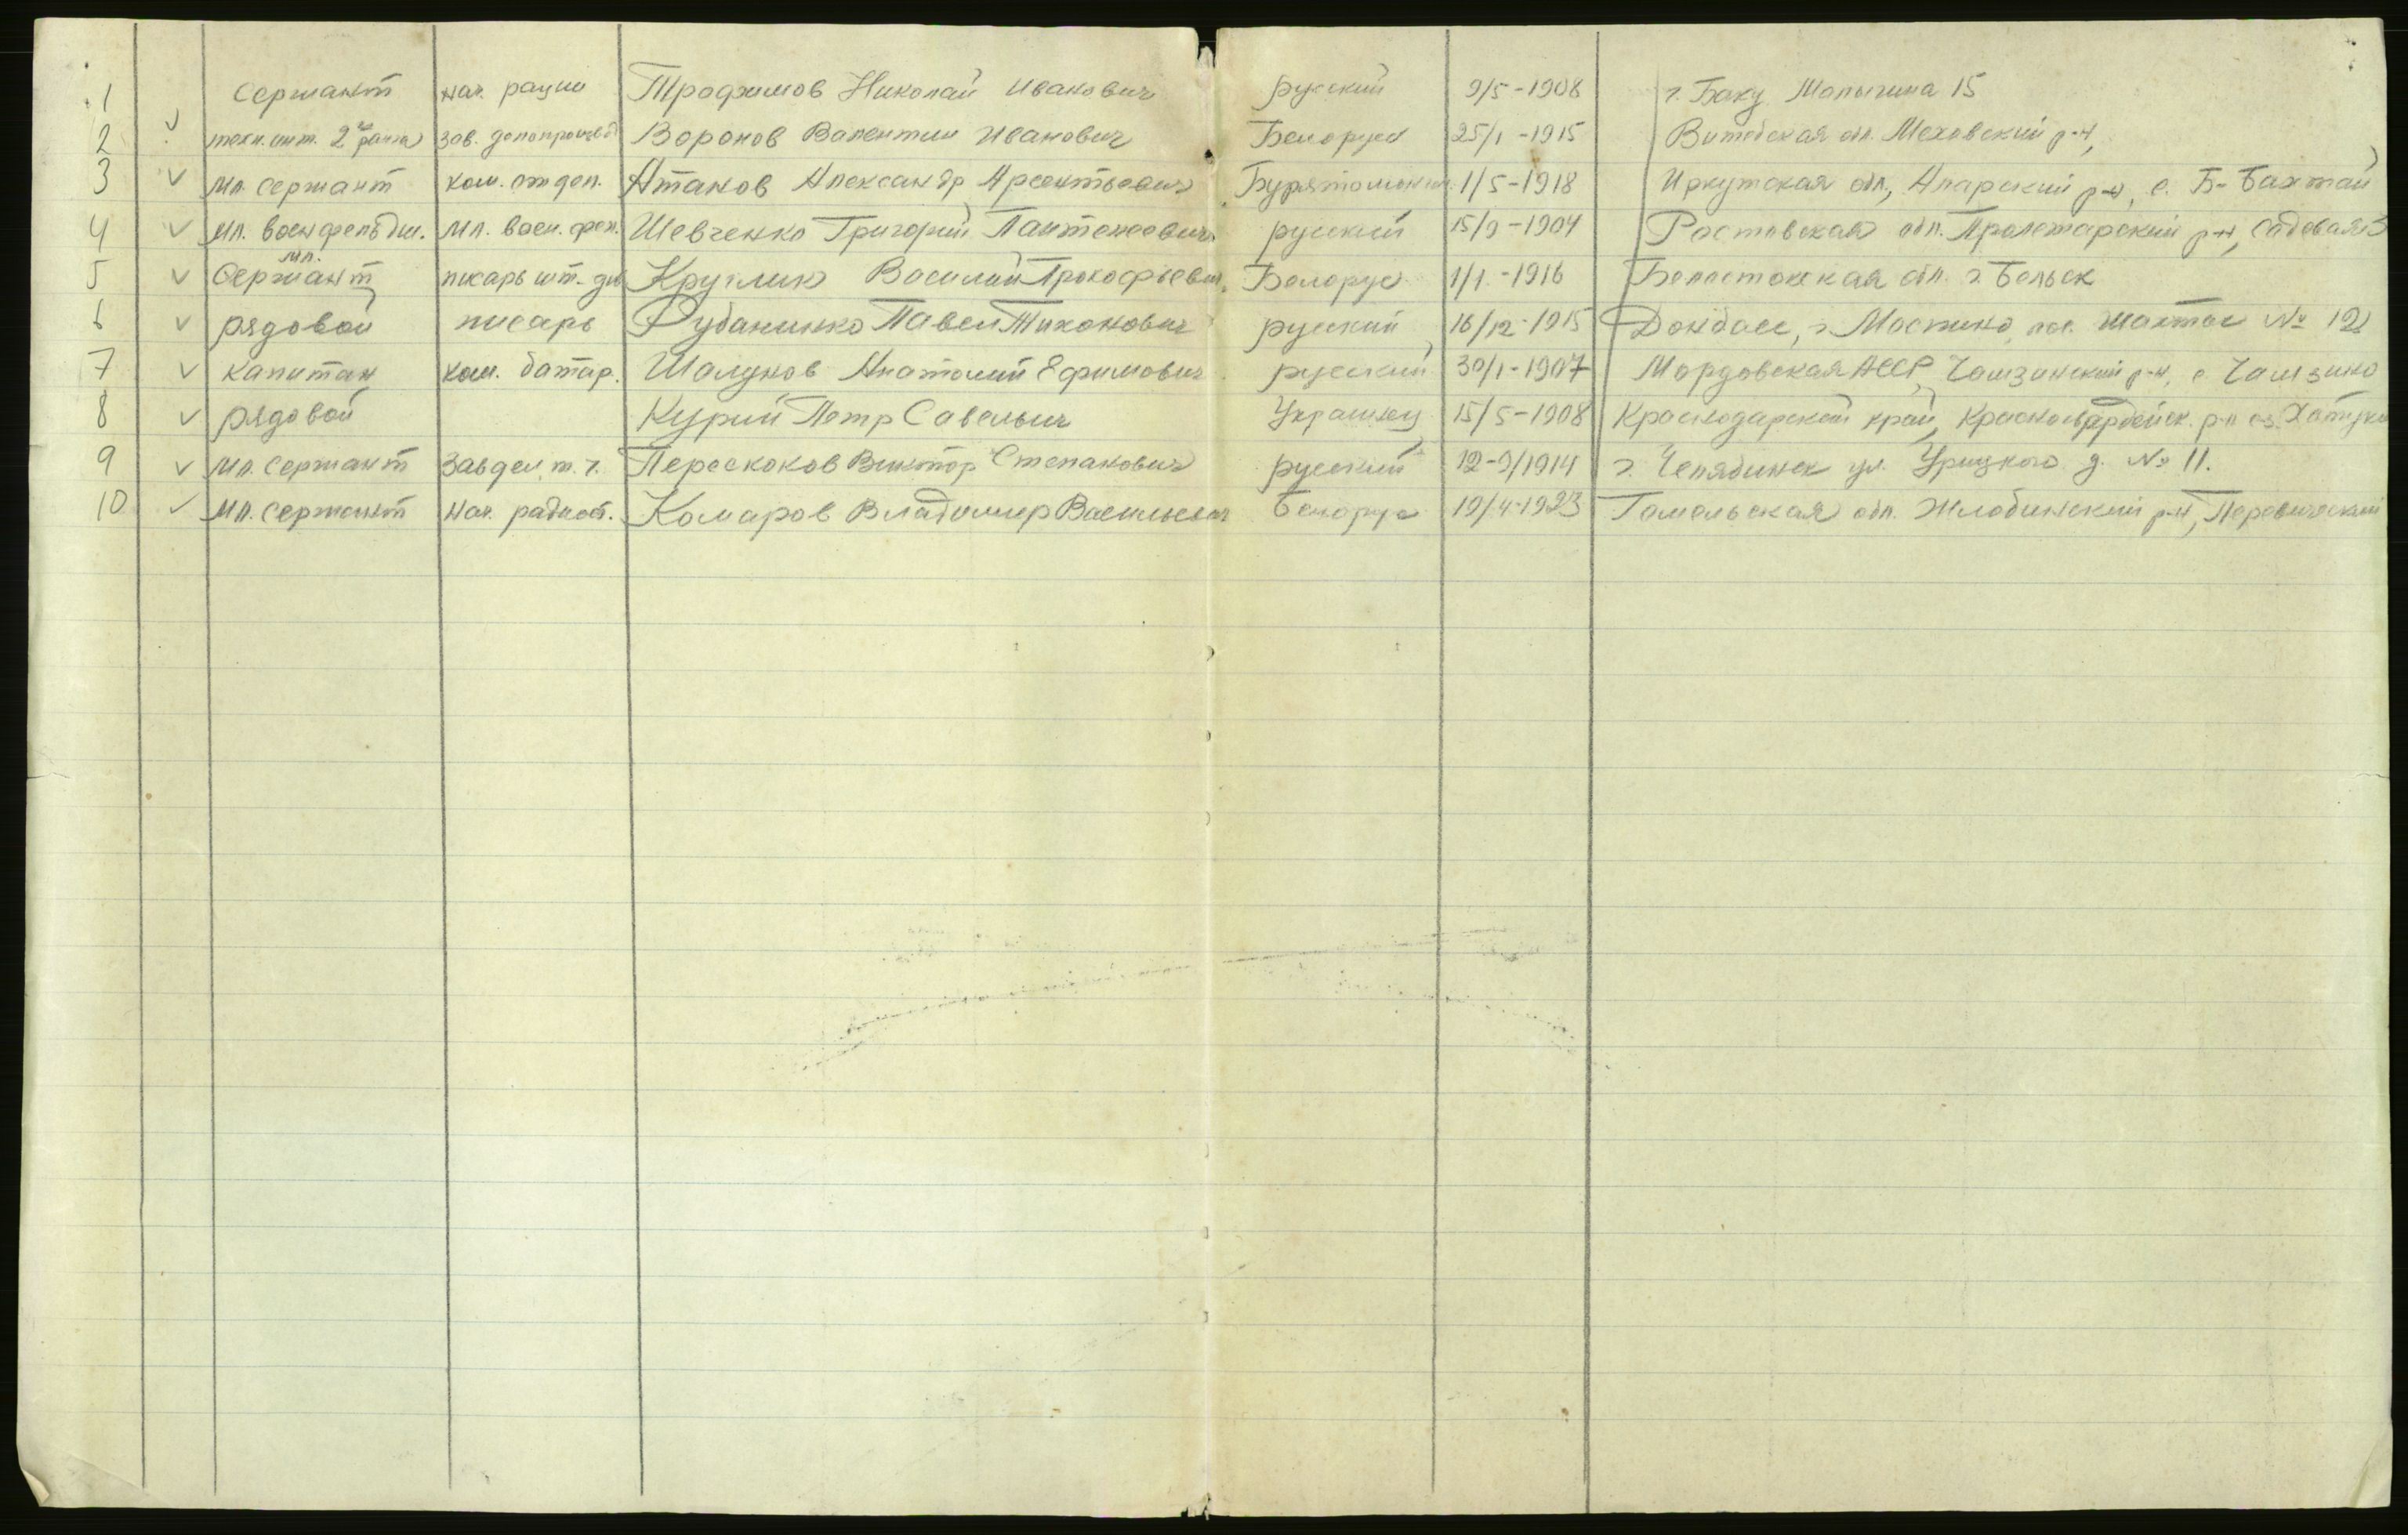 1 сержант нач. рации Трофимов Николай Иванович русский 9/5-1908 г. Баку Малыгина 15
2 ✓ техн. инт. 2го ранга зав. делопроизвод. Воронов Валентин Иванович Белорус 25/1-1915 Витебская обл. Меховский р-н,
3 ✓ мл. сержант ком. отдел. Атанов Александр Арсентьевич Бурятомонгол 1/5-1918 Иркутская обл, Аларский р-н, с. Б-Бахтай
4 ✓ мл. военфельдш. мл. воен. фел. Шевченко Григорий русский 15/9-1904 Ростовская обл. Пролетарский р-н, Садовая 3
5 ✓ мл. Сержант писарь шт. див Круглик Василий Прокофьевич Белорус 1/1.-1916 Белостокская обл. г. Бельск
6 ✓ рядовой писарь Рубанинко Павел Тихонович русский 16/12-1915 Донбасс, г. пос. шахты № 12
7 ✓ капитан ком. батар. Шалунов Анатолий Ефимович русский 30/1-1907 Мордовская АССР, Чамзинский р-н, с. Чамзино
8 ✓ рядовой Курий Петр Савельич Украинец 15/5-1908 Краснодарский край, Красногвардейск. р-н
9 ✓ мл. сержант Завдел. т. ч. Перескоков Виктор Степанович русский 12-9/1914 г. Челябинск ул. Урицкого д. № 11.
10 ✓ мл. сержант нач. радиост. Комаров Владимир Васильевич Белорус 19/4-1923 Гомельская обл. Жлобинский р-н,